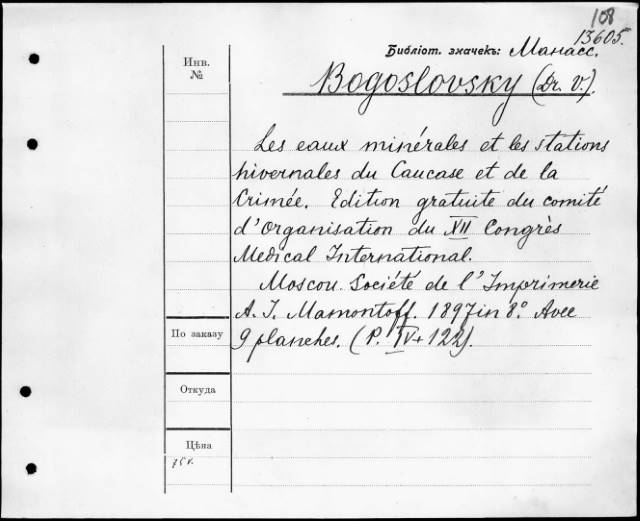 108
13605.
Библіот. значекъ: Манасс.
Инв.
№
Bogoslovsky (Dr. V.).
Les eaux minérales et les stations
hivernales du Caucase et de la
Crimée. Edition gratuite du comité
d'Organisation du XII Congrès
Medical International.
Moscou. Société de l'Imprimerie
A. I. Mamontoff. 1897 in 8.° Avec
9 planches. (P. IV + 122).
По заказу
Откуда
Цѣна
75 к.